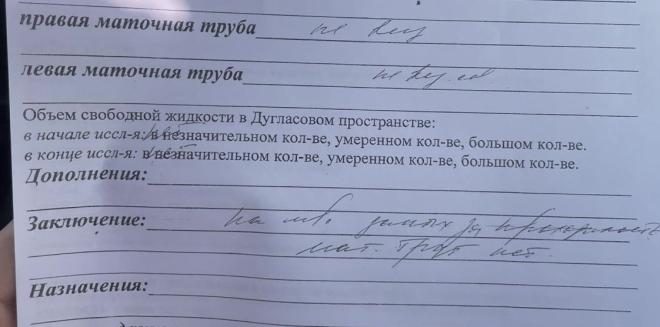 правая маточная труба не виз
левая маточная труба не виз.
Объем свободной жидкости в Дугласовом пространстве:
в начале иссл-я: в незначительном кол-ве, умеренном кол-ве, большом кол-ве.
в конце иссл-я: в незначительном кол-ве, умеренном кол-ве, большом кол-ве.
Дополнения:
Заключение: на данных за проходимость
мат. труб нет.
Назначения: